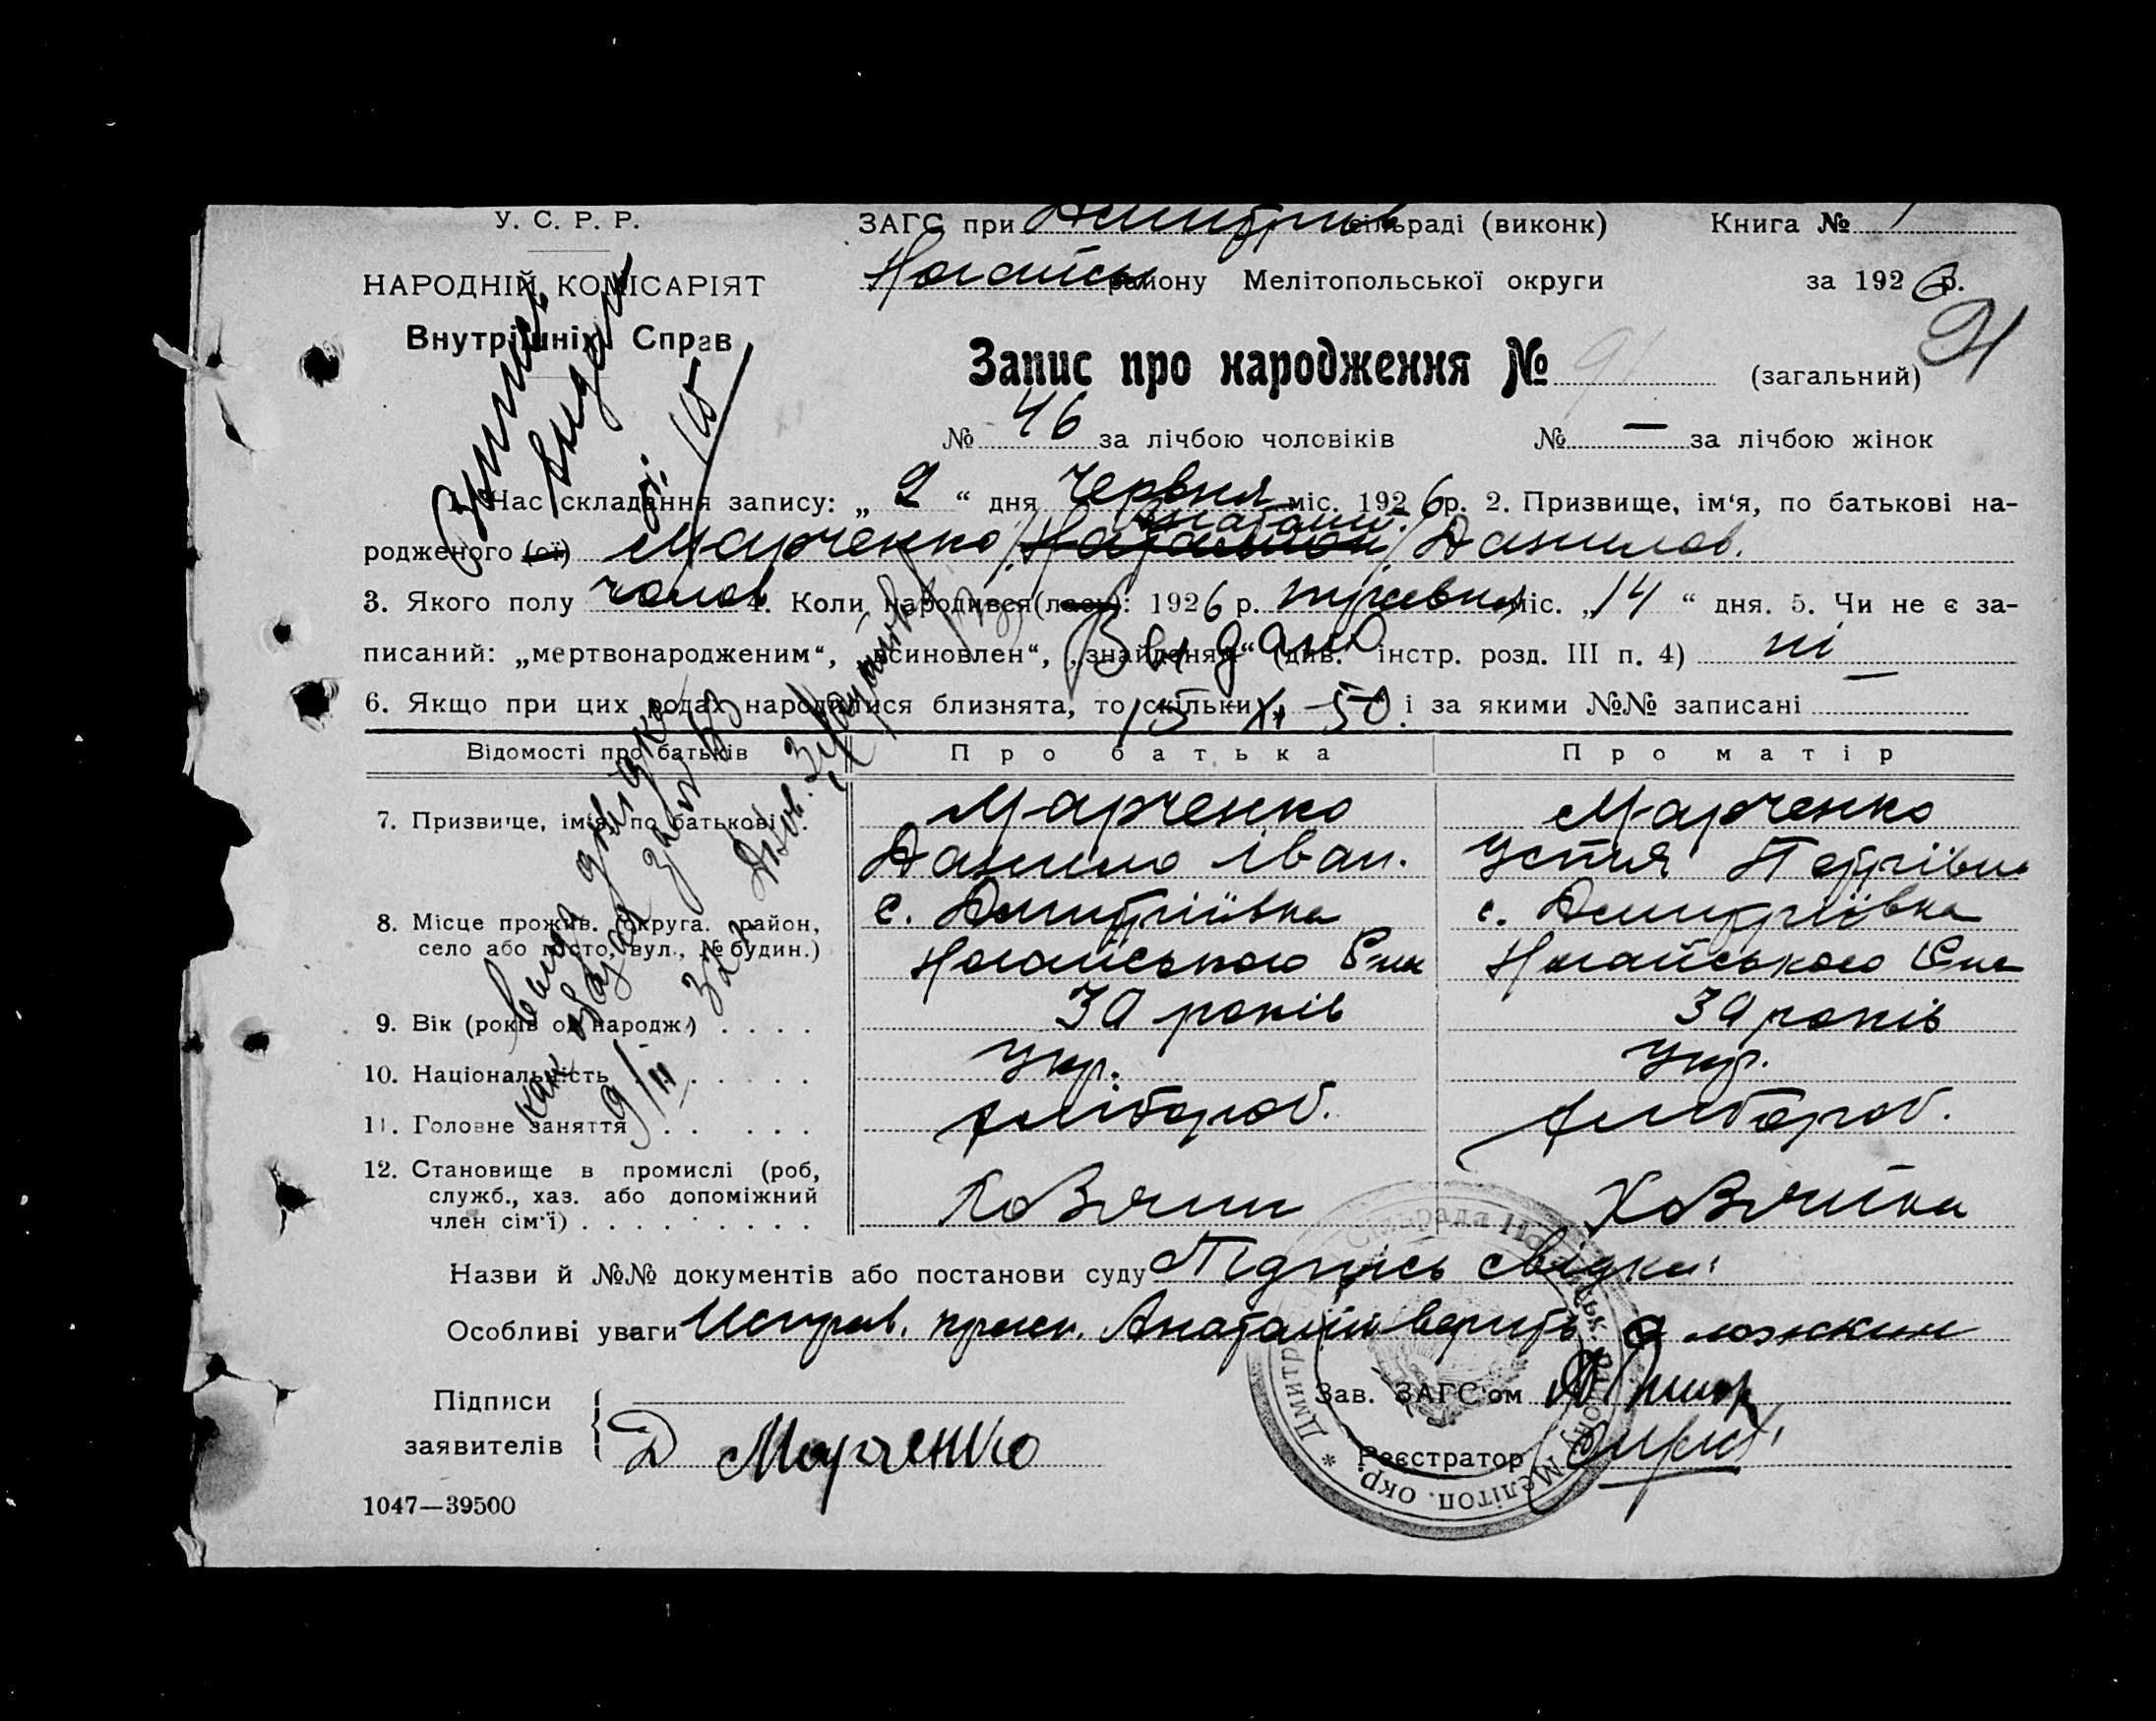 У. С. Р. Р.
НАРОДНІЙ КОМІСАРІЯТ
Внутрішніх Справ
ЗАГС при Дмитрів сільраді (виконк) Книга № 1
Ногайськ району Мелітопольської округи за 1926 р.
91
Запис про народження № 91 (загальний)
№ 46 за лічбою чоловіків № — за лічбою жінок
1. Час складання запису: „ 2 “ дня Червня міс. 1926 р. 2. Призвище, ім‘я, по батькові на-
Анатолій
родженого (ої) Марченко Данилов.
3. Якого полу чолов 4. Коли народився (лась): 1926 р. травня міс. „ 14 “ дня. 5. Чи не є за-
писаний: „мертвонародженим“, „всиновлен“, „знайденям“ (див. інстр. розд. III п. 4) ні
6. Якщо при цих родах народилися близнята, то скільки і за якими №№ записані
Видано
15 XI 50.
Відомості про батьків Про батька Про матір
7. Призвище, ім‘я, по батькові . Марченко Марченко
Данило Іван. Устия Петрівна
8. Місце прожив. (округа. район, с. Дмитріївка с. Дмитріївка
село або місто, вул., № будин.) Ногайського Ногайського
9. Вік (років од народж.) . . . . 39 років 39 років
10. Національність . . . . . . Укр. Укр.
11. Головне заняття . . . . . хлібороб. хлібороб.
12. Становище в промислі (роб, Хозяин Хозяйка
служб., хаз. або допоміжний
член сім‘ї) . . . . . . . . .
Назви й №№ документів або постанови суду Підпись свидки
Особливі уваги Исправ. Анатолий верить
Підписи
заявителів Д Марченко
Зав. ЗАГС‘ом
Реєстратор
1047—39500